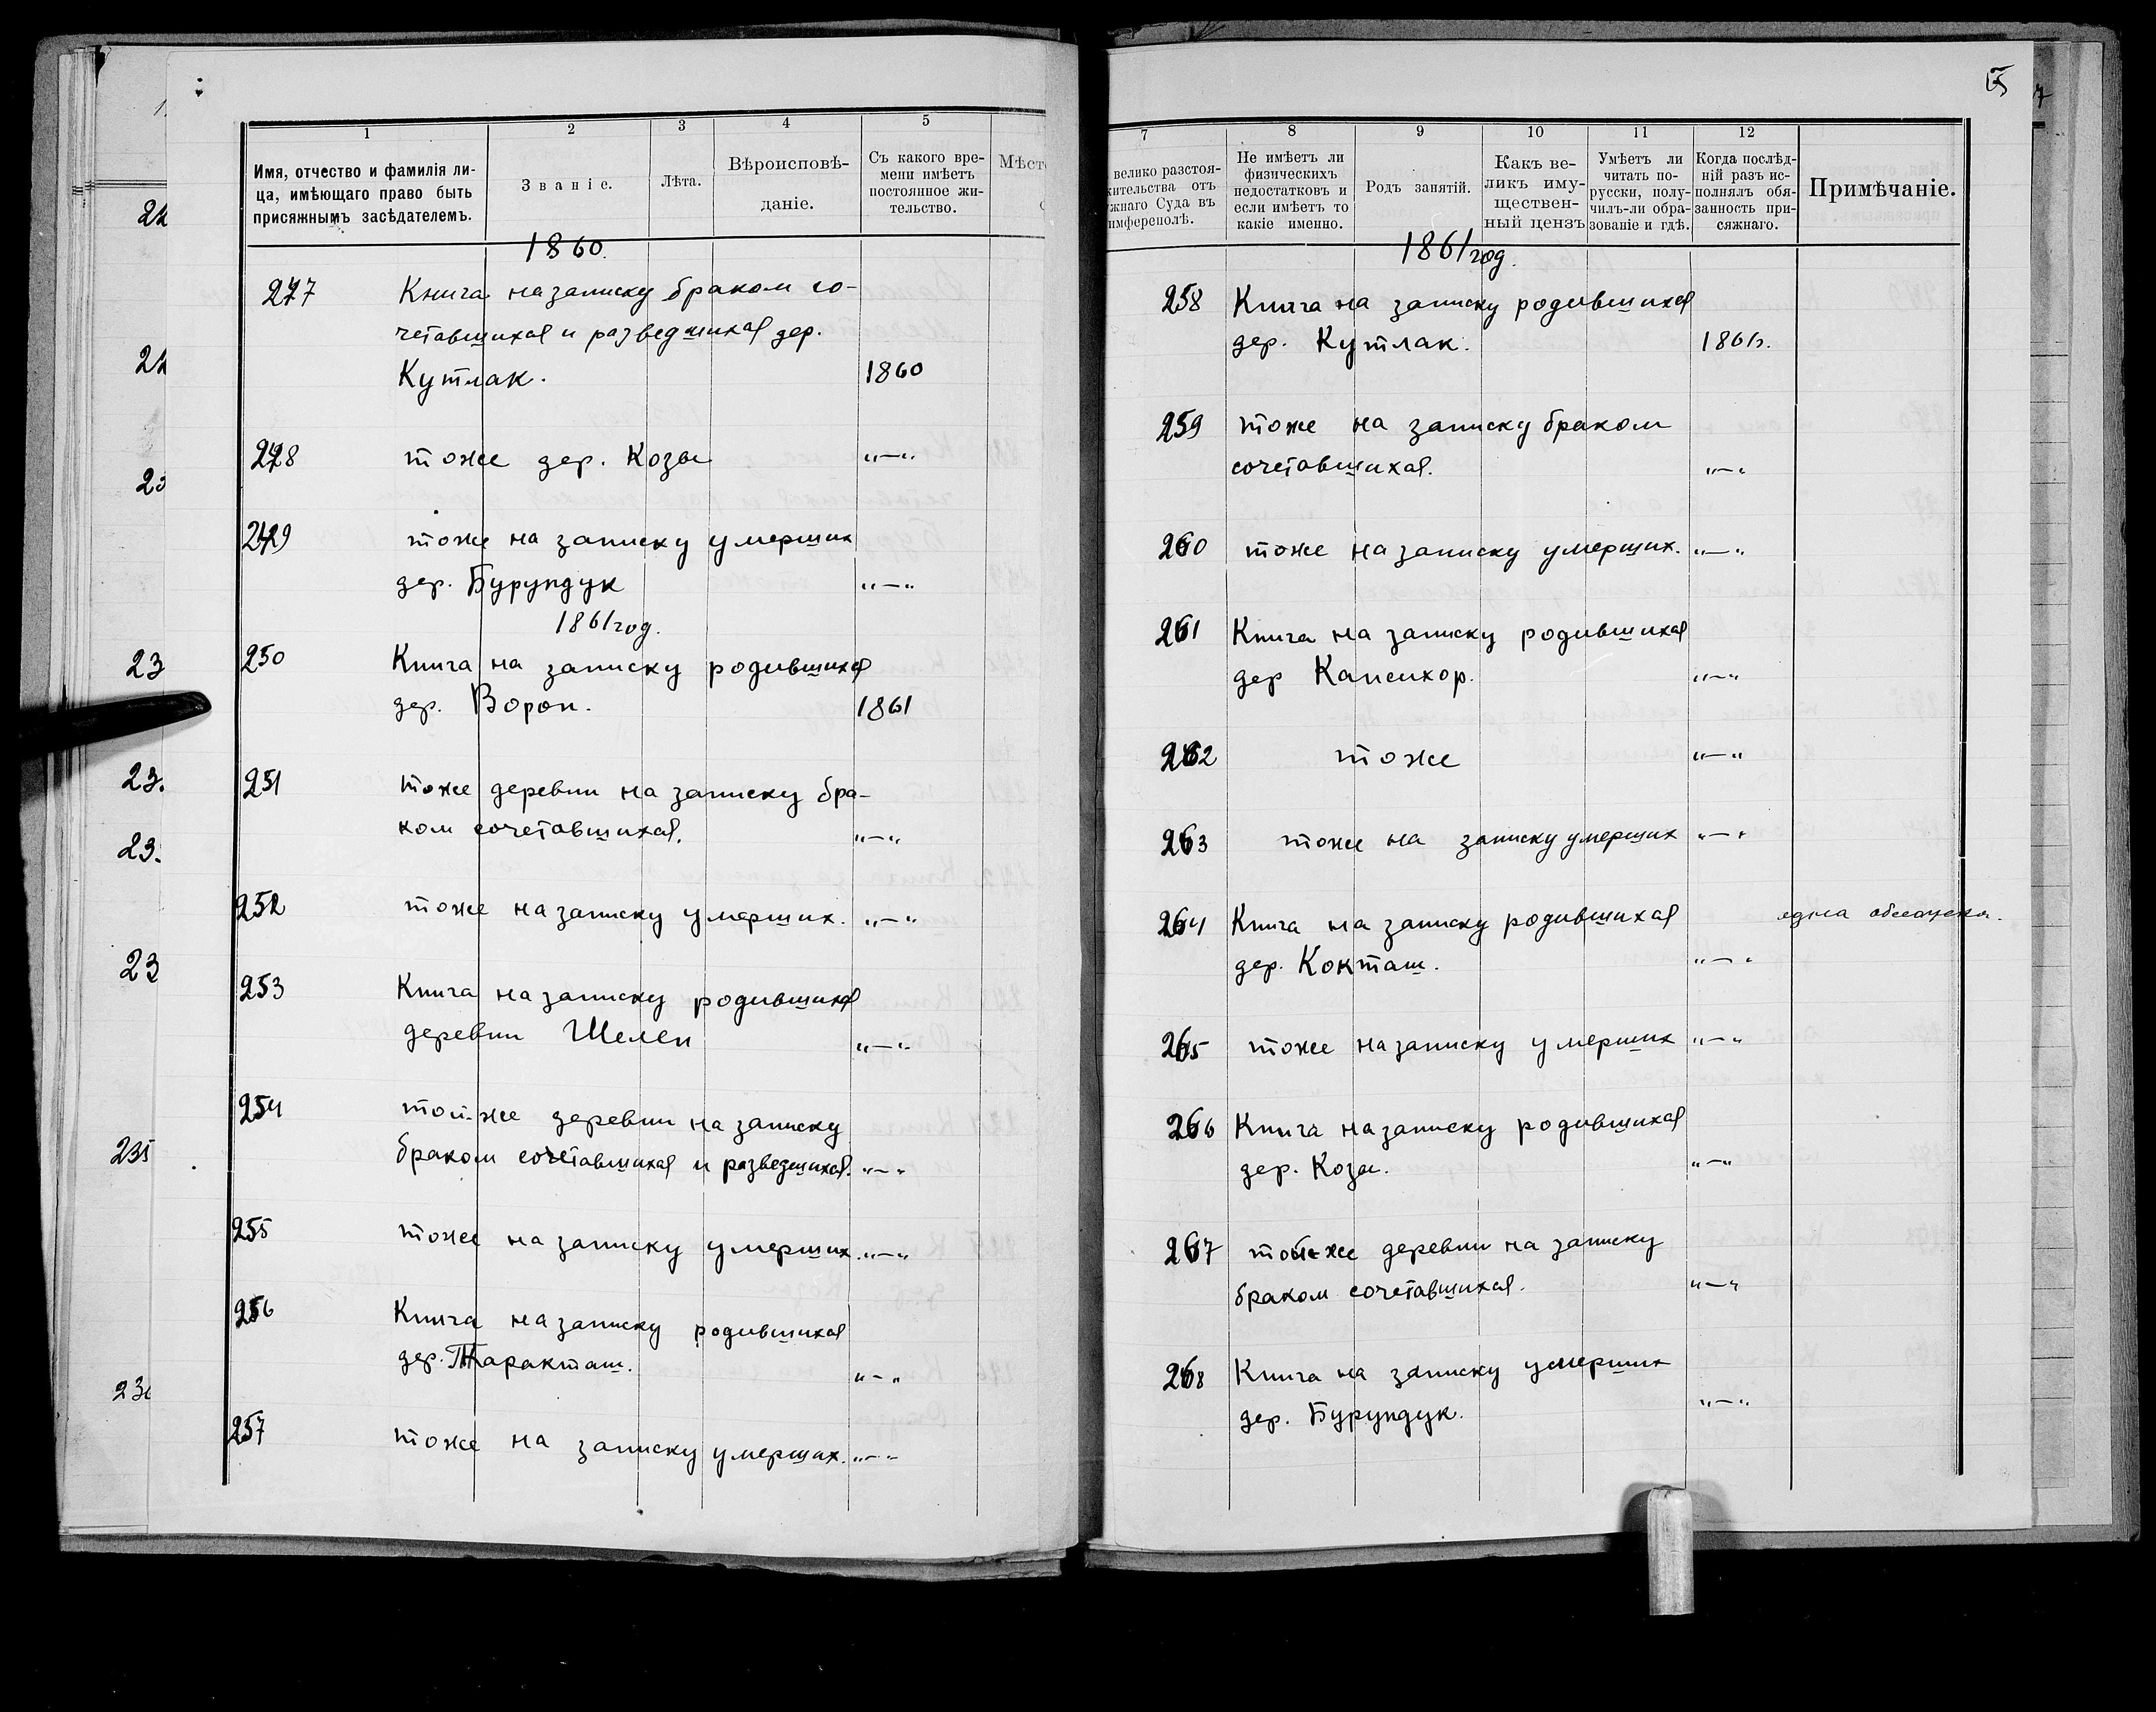 1
2
3
4
5
Имя, отчество и фамилія ли-
ца, имѣющаго право быть
присяжнымъ засѣдателемъ.
Званіе.
Лѣта.
Вѣроисповѣ-
даніе.
Съ какого вре-
мени имѣетъ
постоянное жи-
тельство.
1860.
247 Книга на записку браком со-
четавшихся и разведшихся дер.
Кутлак. 1860
248 тоже дер. Козы „—„
249 тоже на записку умерших
дер. Бурундук „—„
1861 год.
250 Книга на записку родившихся
дер. Ворон. 1861
251 тоже деревни на записку бра-
ком сочетавшихся. „—„
252 тоже на записку умерших. „—„
253 Книга на записку родившихся
деревни Шелен „—„
254 той-же деревни на записку
браком сочетавшихся и разведшихся. „—„
255 тоже на записку умерших. „—„
256 Книга на записку родившихся
дер. Таракташ. „—„
257 тоже на записку умерших. „—„
7
8
9
10
11
12
велико разстоя-
жительства отъ
жнаго Суда въ
имферополѣ.
Не имѣетъ ли
физическихъ
недостатковъ и
если имѣетъ то
какіе именно.
Родъ занятій.
Какъ ве-
ликъ иму-
ществен-
ный цензъ
Умѣетъ ли
читать по-
русски, полу-
чилъ-ли обра-
зованіе и гдѣ.
Когда послѣд-
ній разъ ис-
полнялъ обя-
занность при-
сяжнаго.
Примѣчаніе.
1861 год.
258 Книга на записку родившихся
дер. Кутлак. 1861г.
259 тоже на записку браком
сочетавшихся. „—„
260 тоже на записку умерших. „—„
261 Книга на записку родившихся
дер Капсихор. „—„
262 тоже „—„
263 тоже на записку умерших „—„
264 Книга на записку родившихся одна
дер. Кокташ. „—„
265 тоже на записку умерших „—„
266 Книга на записку родившихся
дер. Козы. „—„
267 той-же деревни на записку
браком сочетавшихся. „—„
268 Книга на записку умерших
дер. Бурундук. „—„